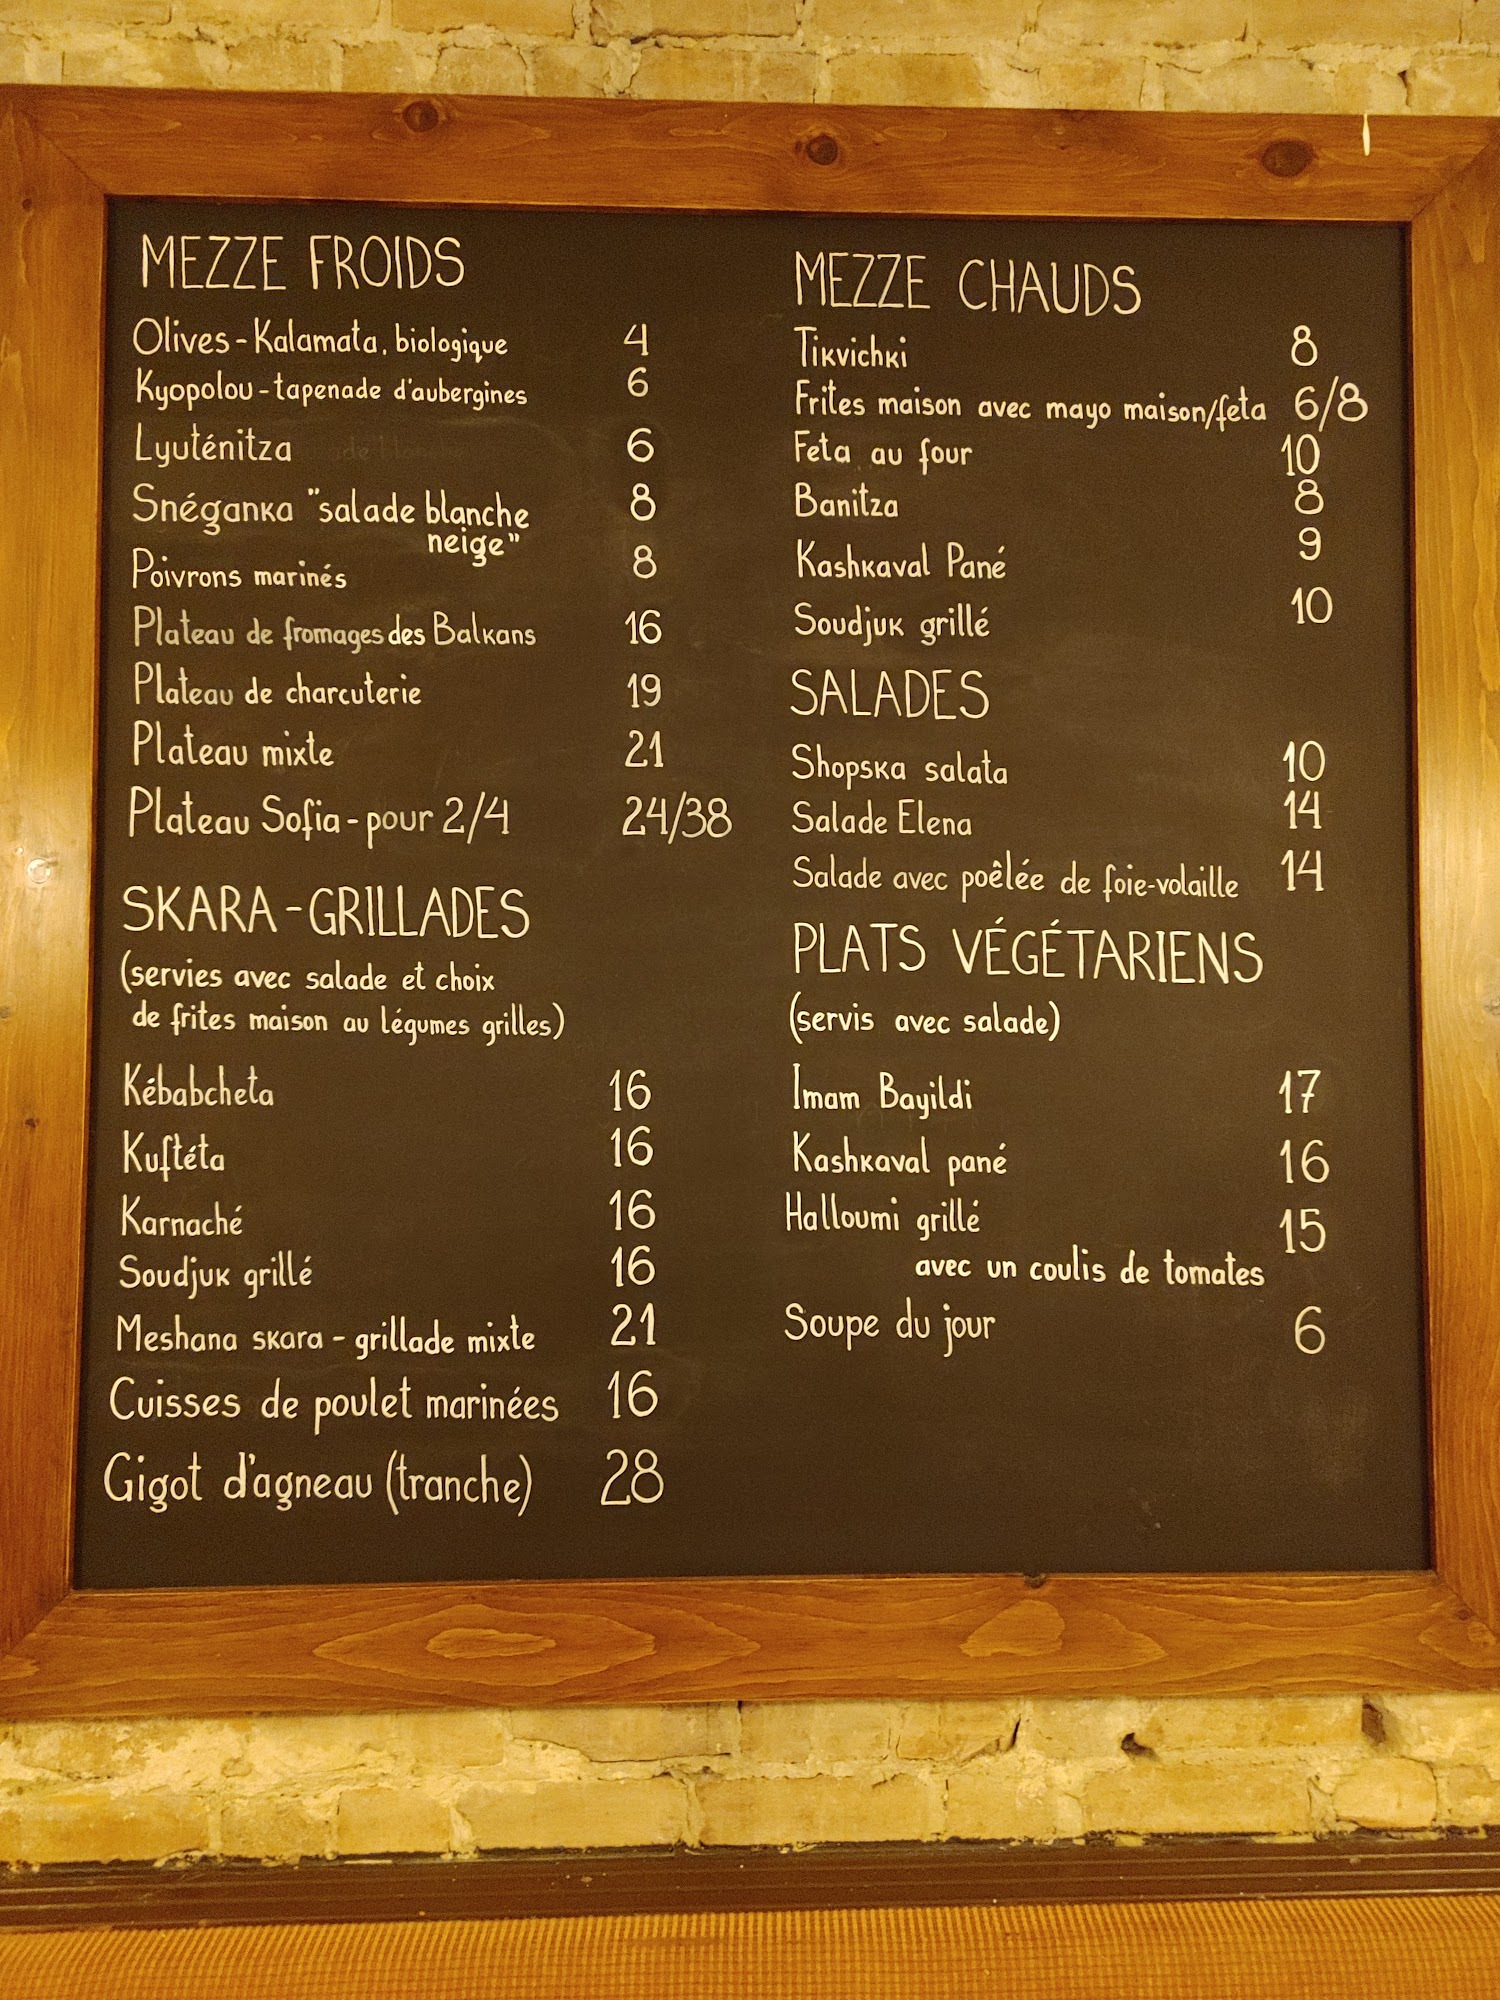 MEZZE FROIDS
Olives - Kalamata, biologique 4
Kyopolou - tapenade d'aubergines 6
Lyuténitza 6
Snéganka "salade blanche 8
neige"
Poivrons marinés 8
Plateau de fromages des Balkans 16
Plateau de charcuterie 19
Plateau mixte 21
Plateau Sofia - pour 2/4 24/38
SKARA - GRILLADES
(servies avec salade et choix
de frites maison au légumes grilles)
Kébabcheta 16
Kuftéta 16
Karnaché 16
Soudjuk grillé 16
Meshana skara - grillade mixte 21
Cuisses de poulet marinées 16
Gigot d'agneau (tranche) 28
MEZZE CHAUDS
Tikvichki 8
Frites maison avec mayo maison/feta 6/8
Feta au four 10
Banitza 8
Kashkaval Pané 9
Soudjuk grillé 10
SALADES
Shopska salata 10
Salade Elena 14
Salade avec poêlée de foie-volaille 14
PLATS VÉGÉTARIENS
(servis avec salade)
Imam Bayildi 17
Kashkaval pané 16
Halloumi grillé 15
avec un coulis de tomates
Soupe du jour 6